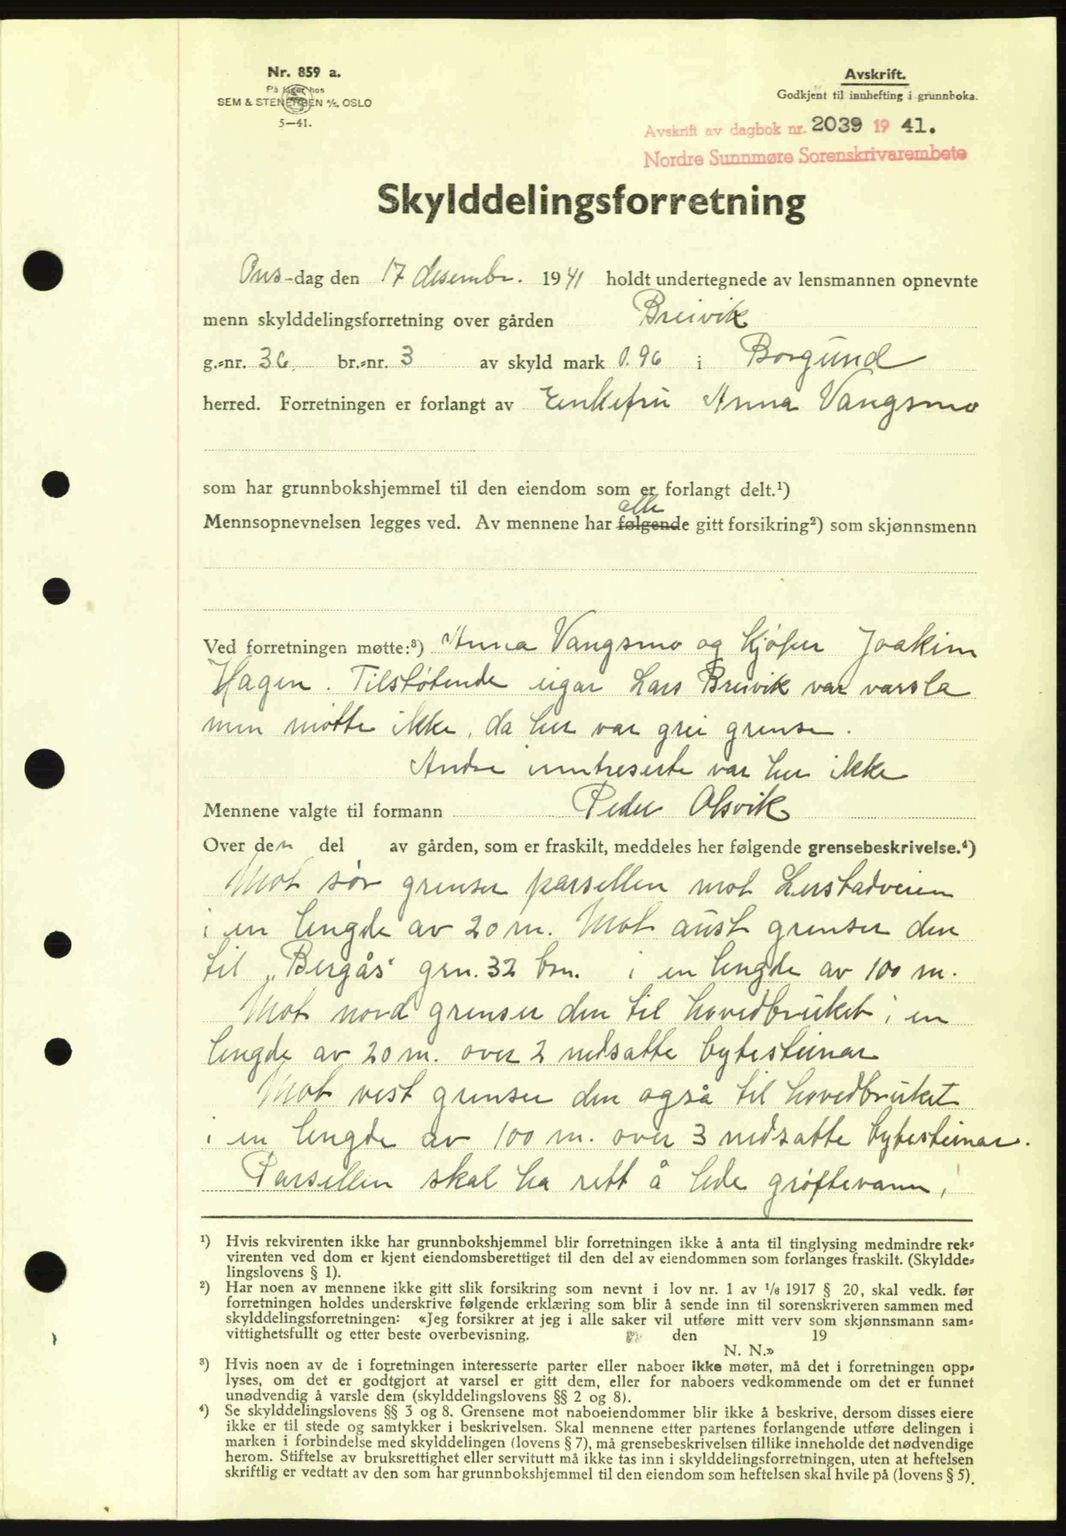 Nr. 859 a.
På lager hos
SEM & STENERSEN A/S, OSLO
5—41.
Avskrift.
Godkjent til innhefting i grunnboka.
Avskrift av dagbok nr. 2039 19 41.
Nordre Sunnmøre Sorenskrivarembete
Skylddelingsforretning
Ons-dag den 17 desembr. 1941 holdt undertegnede av lensmannen opnevnte
menn skylddelingsforretning over gården Breivik
g.-nr. 36 br.-nr. 3 av skyld mark 0.96 i Borgund
herred. Forretningen er forlangt av Enkefru Anna Vangsmo
som har grunnbokshjemmel til den eiendom som er forlangt delt.¹)
alle
Mennsopnevnelsen legges ved. Av mennene har følgende gitt forsikring²) som skjønnsmenn
Ved forretningen møtte:³) Anna Vangsmo og kjøper Joakim
Hagen. Tilstøtende eigar Lars Breivik var varsla
men møtte ikke, da her var grei grense.
Andre inntreserte var her ikke
Mennene valgte til formann Peder Olsvik
Over den del av gården, som er fraskilt, meddeles her følgende grensebeskrivelse.⁴)
Mot sør grenser parsellen mot Lerstadveien
i en lengde av 20 m. Mot aust grenser den
til "Bergås" grn. 32 brn. i en lengde av 100 m.
Mot nord grenser den til hovedbruket i en
lengde av 20 m. over 2 nedsatte bytesteinar
Mot vest grenser den også til hovedbruket
i en lengde av 100 m. over 3 nedsatte bytesteinar.
Parsellen skal ha rett å lede grøftevann,
¹) Hvis rekvirenten ikke har grunnbokshjemmel blir forretningen ikke å anta til tinglysing medmindre rek-
virenten ved dom er kjent eiendomsberettiget til den del av eiendommen som forlanges fraskilt. (Skyldde-
lingslovens § 1).
²) Har noen av mennene ikke gitt slik forsikring som nevnt i lov nr. 1 av 1/6 1917 § 20, skal vedk. før
forretningen holdes underskrive følgende erklæring som blir å sende inn til sorenskriveren sammen med
skylddelingsforretningen: «Jeg forsikrer at jeg i alle saker vil utføre mitt verv som skjønnsmann sam-
vittighetsfullt og etter beste overbevisning. den 19
N. N.»
³) Hvis noen av de i forretningen interesserte parter eller naboer ikke møter, må det i forretningen opp-
lyses, om det er godtgjort at varsel er gitt dem, eller for naboers vedkommende om det er funnet
unødvendig å varsle dem (skylddelingslovens §§ 2 og 8).
⁴) Se skylddelingslovens §§ 3 og 8. Grensene mot naboeiendommer blir ikke å beskrive, dersom disses eiere
ikke er til stede og samtykker i beskrivelsen. Skal mennene etter partenes forlangende utføre delingen i
marken i forbindelse med skylddelingen (lovens § 7), må grensebeskrivelsen tillike inneholde det nødvendige
herom. Stiftelse av bruksrettighet eller servitutt må ikke tas inn i skylddelingsforretningen, uten at heftelsen
skriftlig er vedtatt av den som har grunnbokshjemmel til den eiendom som heftelsen skal hvile på (lovens § 5).